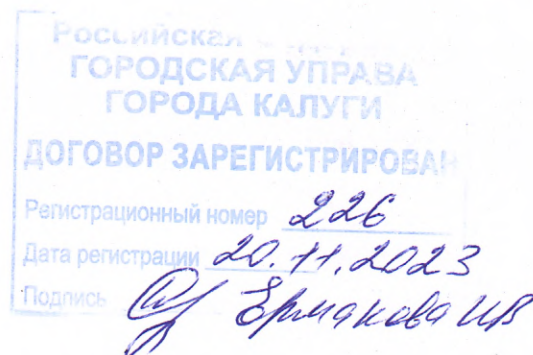 Российская
ГОРОДСКАЯ УПРАВА
ГОРОДА КАЛУГИ
ДОГОВОР ЗАРЕГИСТРИРОВАН
Регистрационный номер 226
Дата регистрации 20.11.2023
Подпись Ермакова ИВ